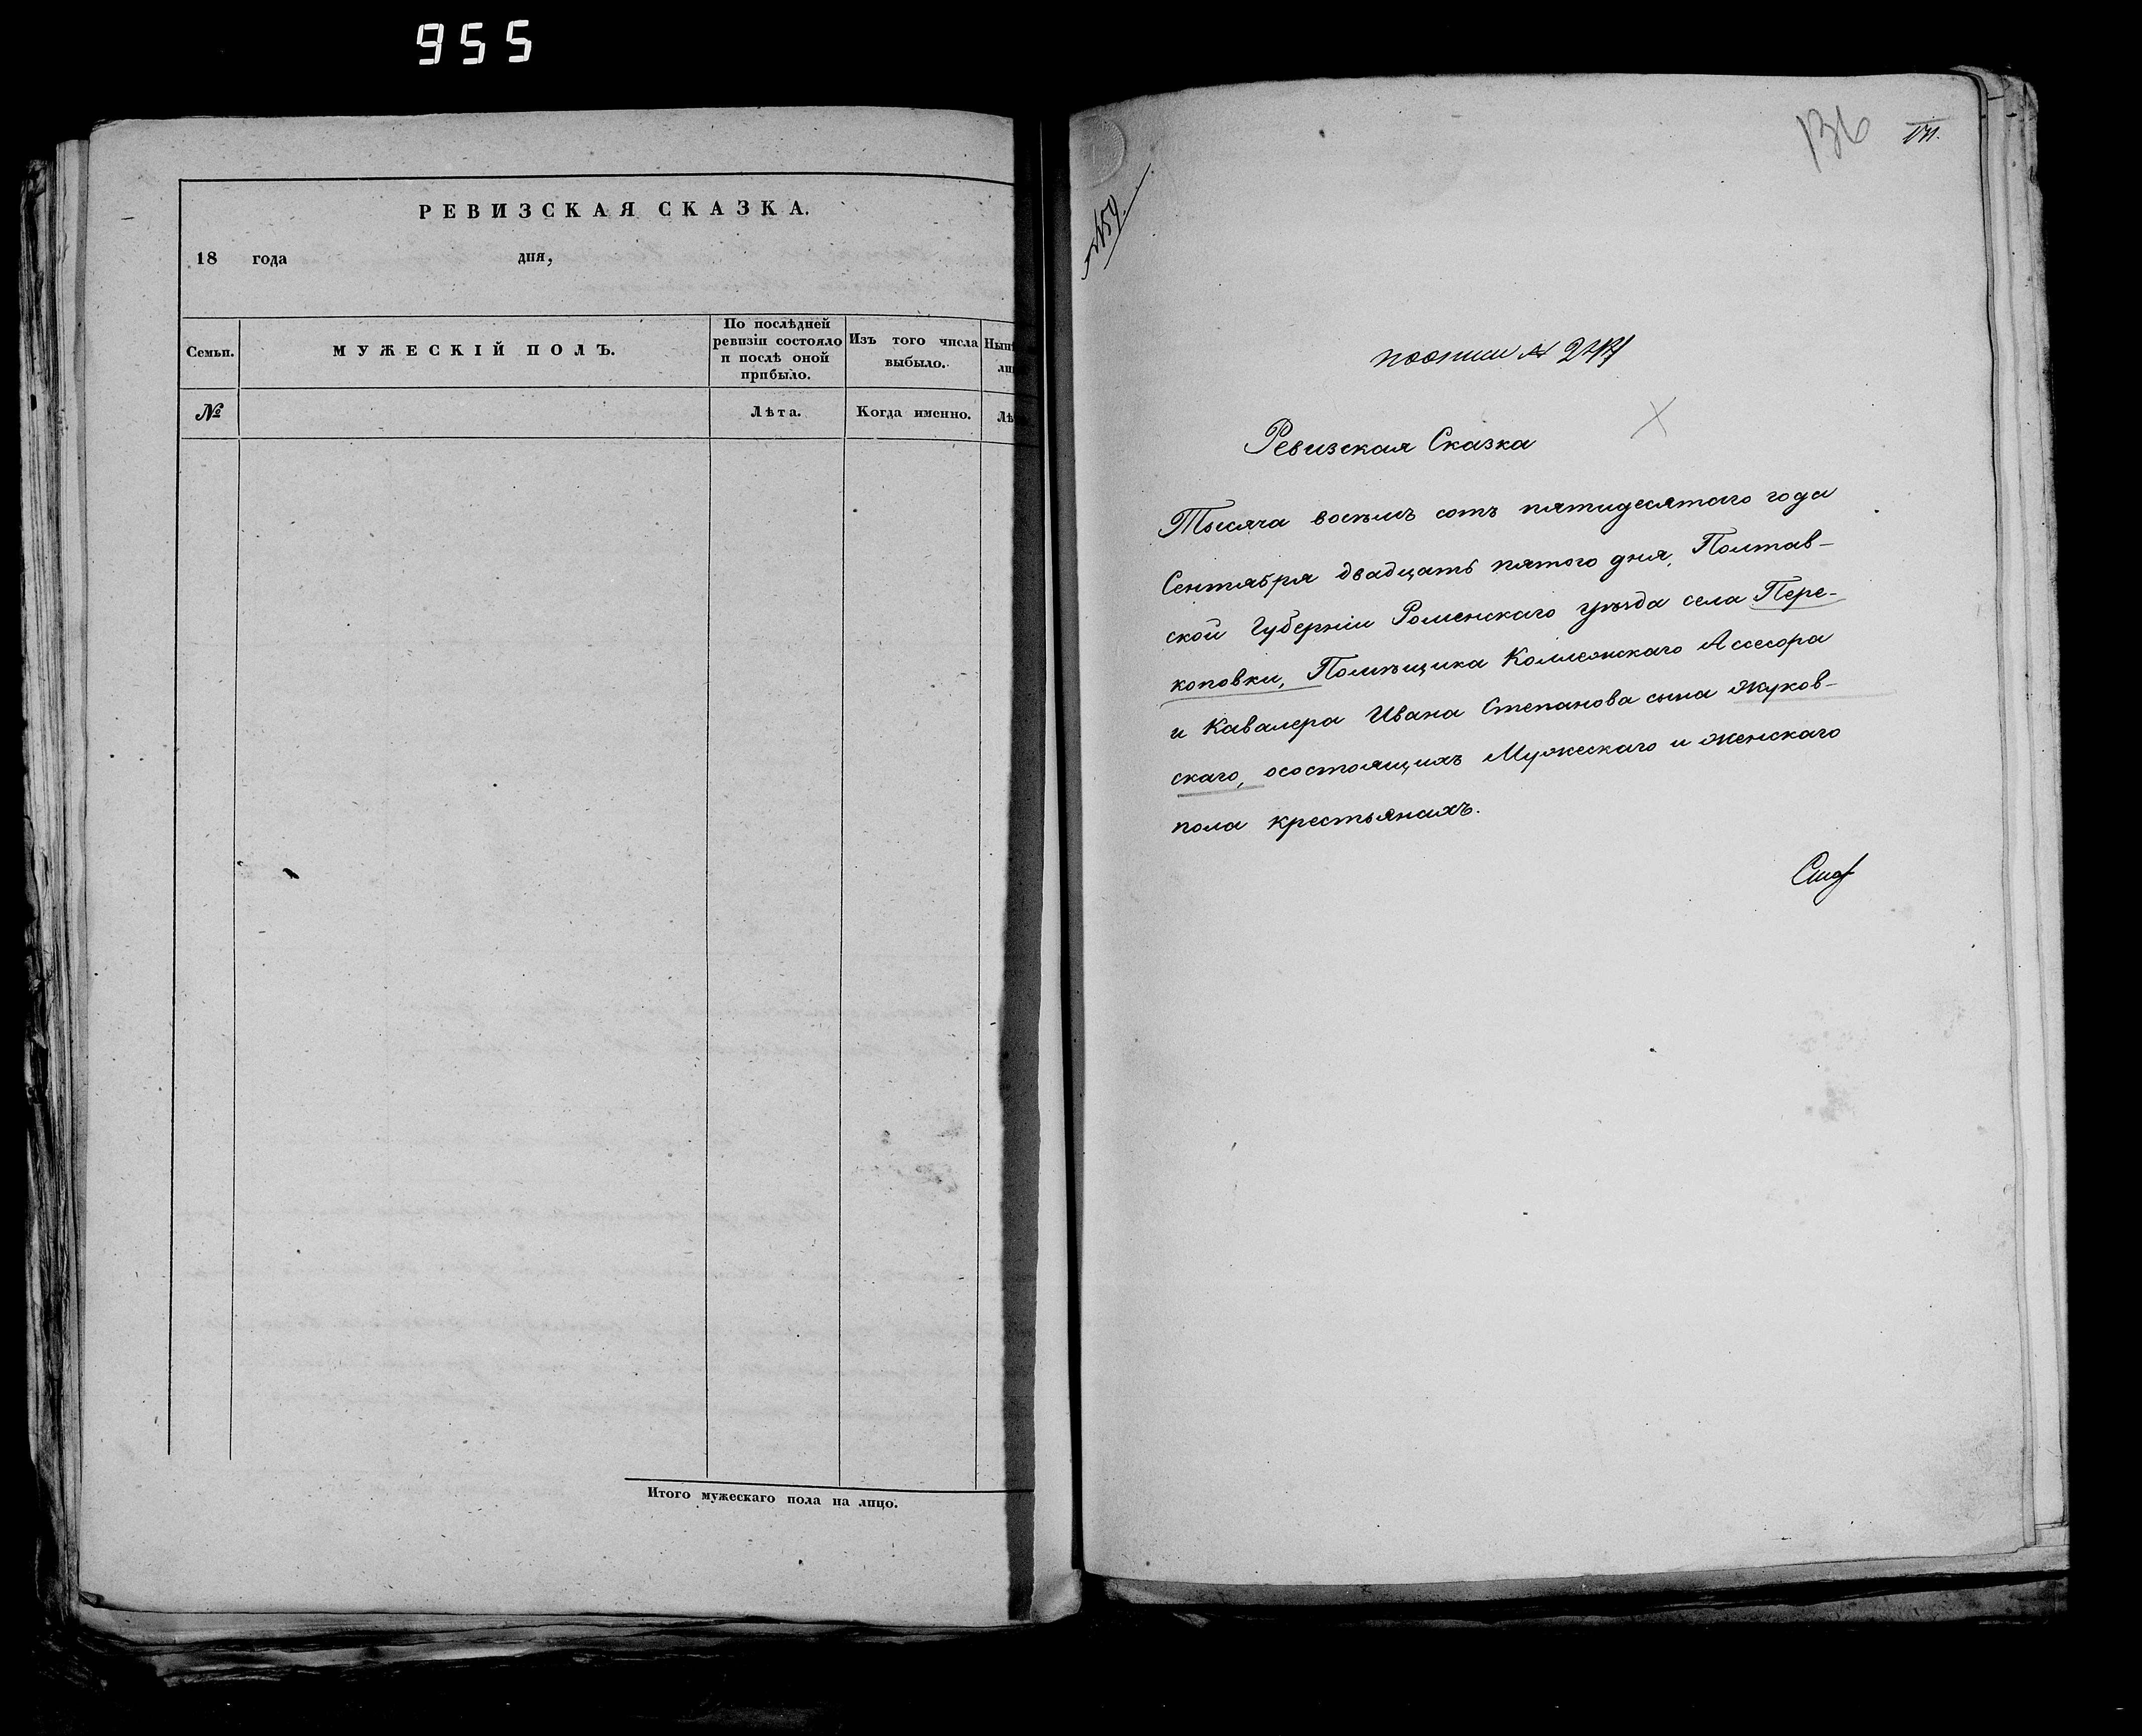 955
РЕВИЗСКАЯ СКАЗКА.
18 года дня,
Семьи.
МУЖЕСКІЙ ПОЛЪ.
По послѣдней
ревизіи состояло
и послѣ оной
прибыло.
Изъ того числа
выбыло.
№
Лѣта.
Когда именно.
Итого мужескаго пола на лицо.
136
№59.
поописи №
Ревизская Сказка
Тысяча восѣмъ сотъ пятидесятаго года
Сентября двадцать пятого дня, Полтав-
ской Губерніи Роменскаго уѣзда села Пере-
коповки, Помѣщика Коллежскаго Ассесора
и Кавалера Ивана Степанова сына Жуков-
скаго, осостоящихъ Мужескаго и женскаго
пола крестьянахъ.